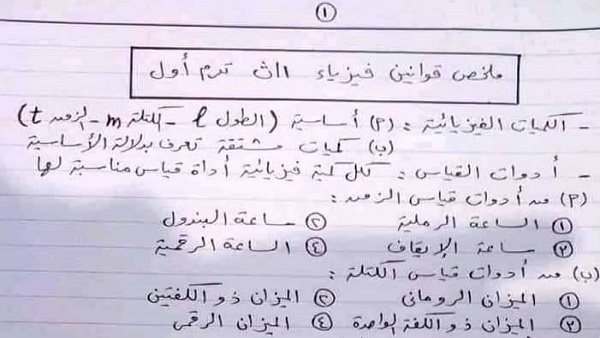 ①
ملخص قوانين فيزياء ١اث ترم أول
- الكميات الفيزيائية : (أ) أساسية (الطول l - الكتلة m - الزمن t)
(ب) كميات مشتقة تعرف بدلالة الأساسية
- أدوات القياس : لكل كمية فيزيائية أداة قياس مناسبة لها
(أ) من أدوات قياس الزمن :
① الساعة الرملية ② ساعة البندول
③ ساعة الإيقاف ④ الساعة الرقمية
(ب) من أدوات قياس الكتلة :
① الميزان الرومانى ② الميزان ذو الكفتين
③ الميزان ذو الكفة الواحدة ④ الميزان الرقمى